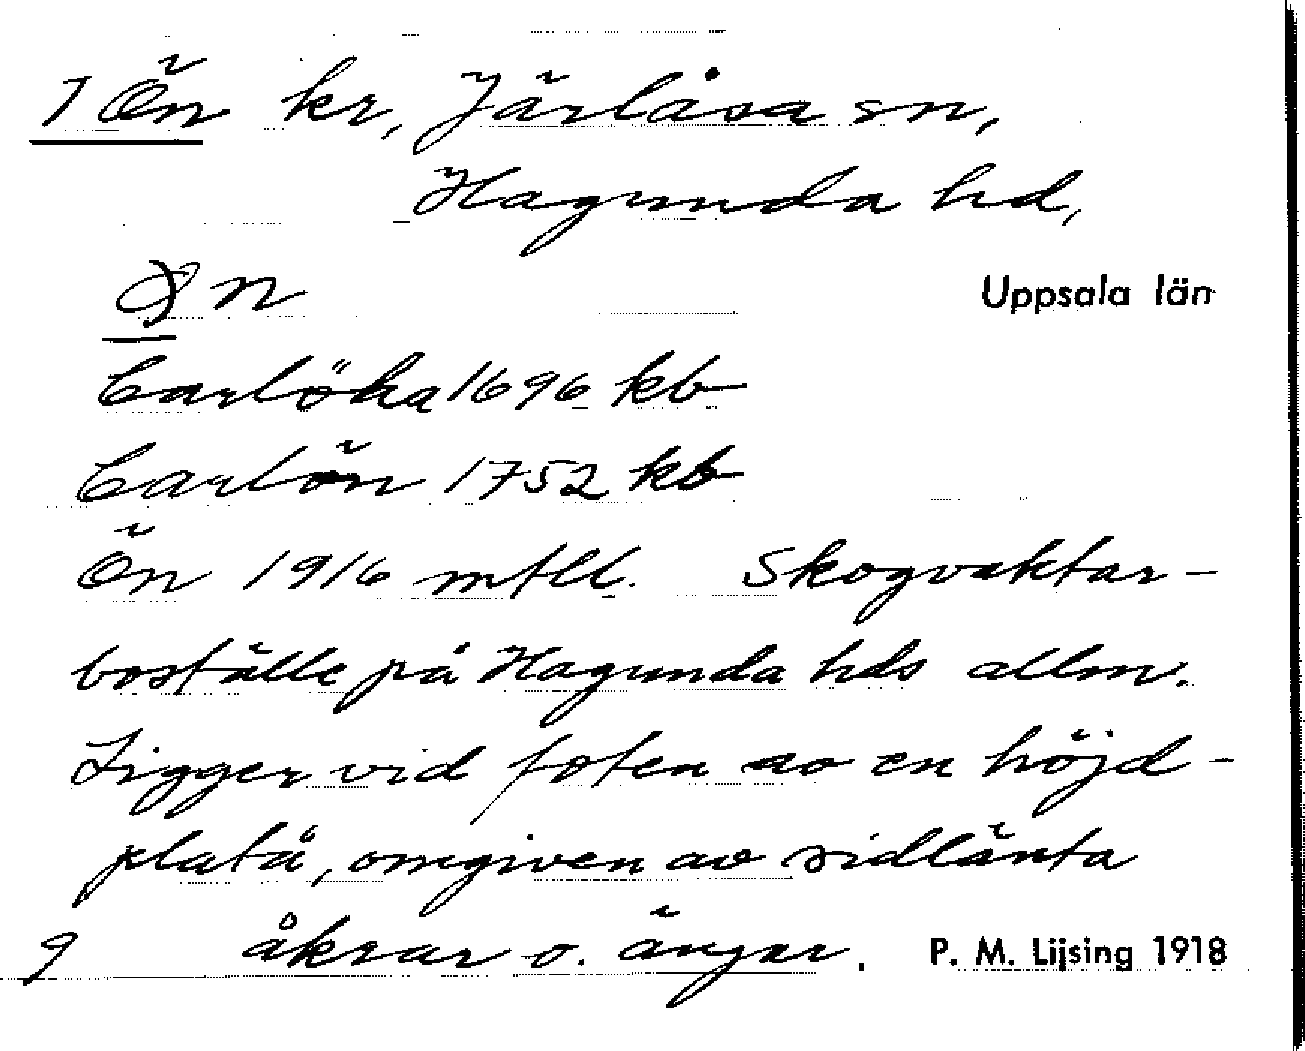 1 Ön kr, Järlåsa sn,
Hagunda hd,
n
Uppsala län
Carlöka 1696 kb
Carlön 1752 kb
Ön 1916 mtll. Skogvaktar-
boställe på Hagunda hds allm.
Ligger vid foten av en höjd-
platå, omgiven av sidlänta
9 åkrar o. ängar.
P. M. Lijsing 1918